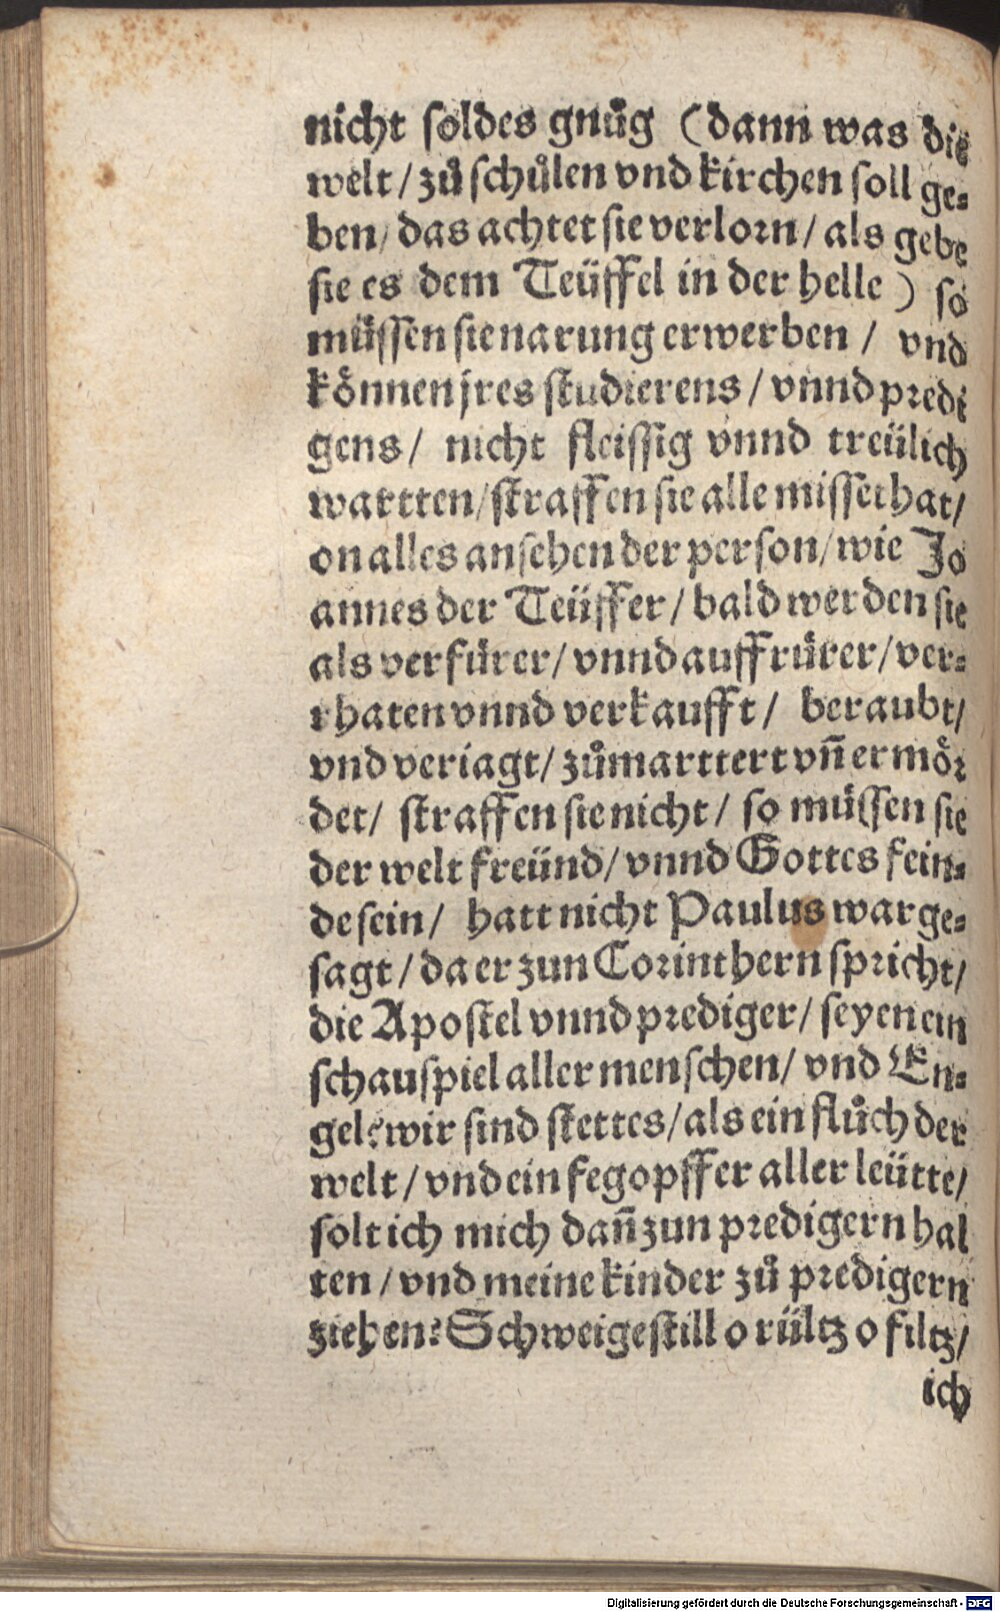 nicht soldes gnůg (dann was die
welt / zů schůlen vnd kirchen soll ge⸗
ben / das achtet sie verlorn / als gebe
sie es dem Teüffel in der helle ) so
müssen sie narung erwerben / vnd
können jres studierens / vnnd predi
gens / nicht fleissig vnnd treülich
wartten / straffen sie alle missethat /
on alles ansehen der person / wie Jo
annes der Teüffer / bald werden sie
als verfürer / vnnd auffrürer / ver⸗
rhaten vnnd verkaufft / beraubt /
vnd veriagt / zůmarttert vñ ermör
det / straffen sie nicht / so müssen sie
der welt freünd / vnnd Gottes fein⸗
de sein / hatt nicht Paulus war ge⸗
sagt / da er zun Corinthern spricht /
die Apostel vnnd prediger / seyen ein
schauspiel aller menschen / vnd En⸗
gel? wir sind stettes / als ein flůch der
welt / vnd ein fegopffer aller leütte /
solt ich mich dañ zun predigern hal
ten / vnd meine kinder zů predigern
ziehen? Schweige still o rültz o filtz /
ich
Digitalisierung gefördert durch die Deutsche Forschungsgemeinschaft - DFG